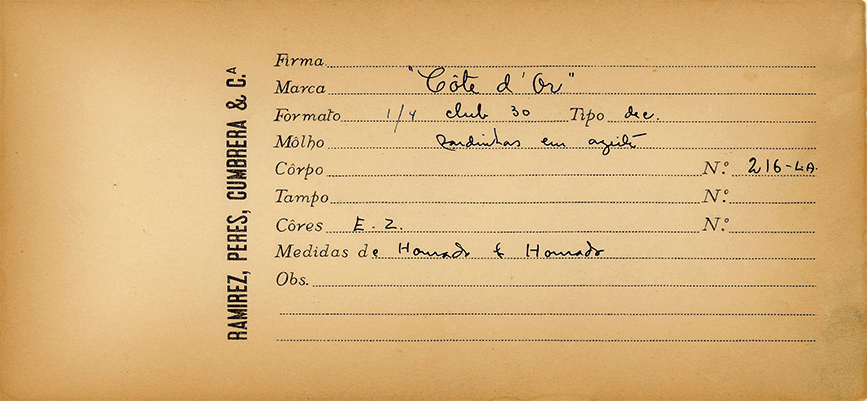 RAMIREZ, PERES, CUMBRERA & C.ᴬ
Firma
Marca "Côte d'Or"
Formato 1/4 club 30 Tipo dec.
Môlho sardinhas em azeite
Côrpo N.º 216-LA.
Tampo N.º
Côres E. Z. N.º
Medidas de Honrado & Honrado
Obs.